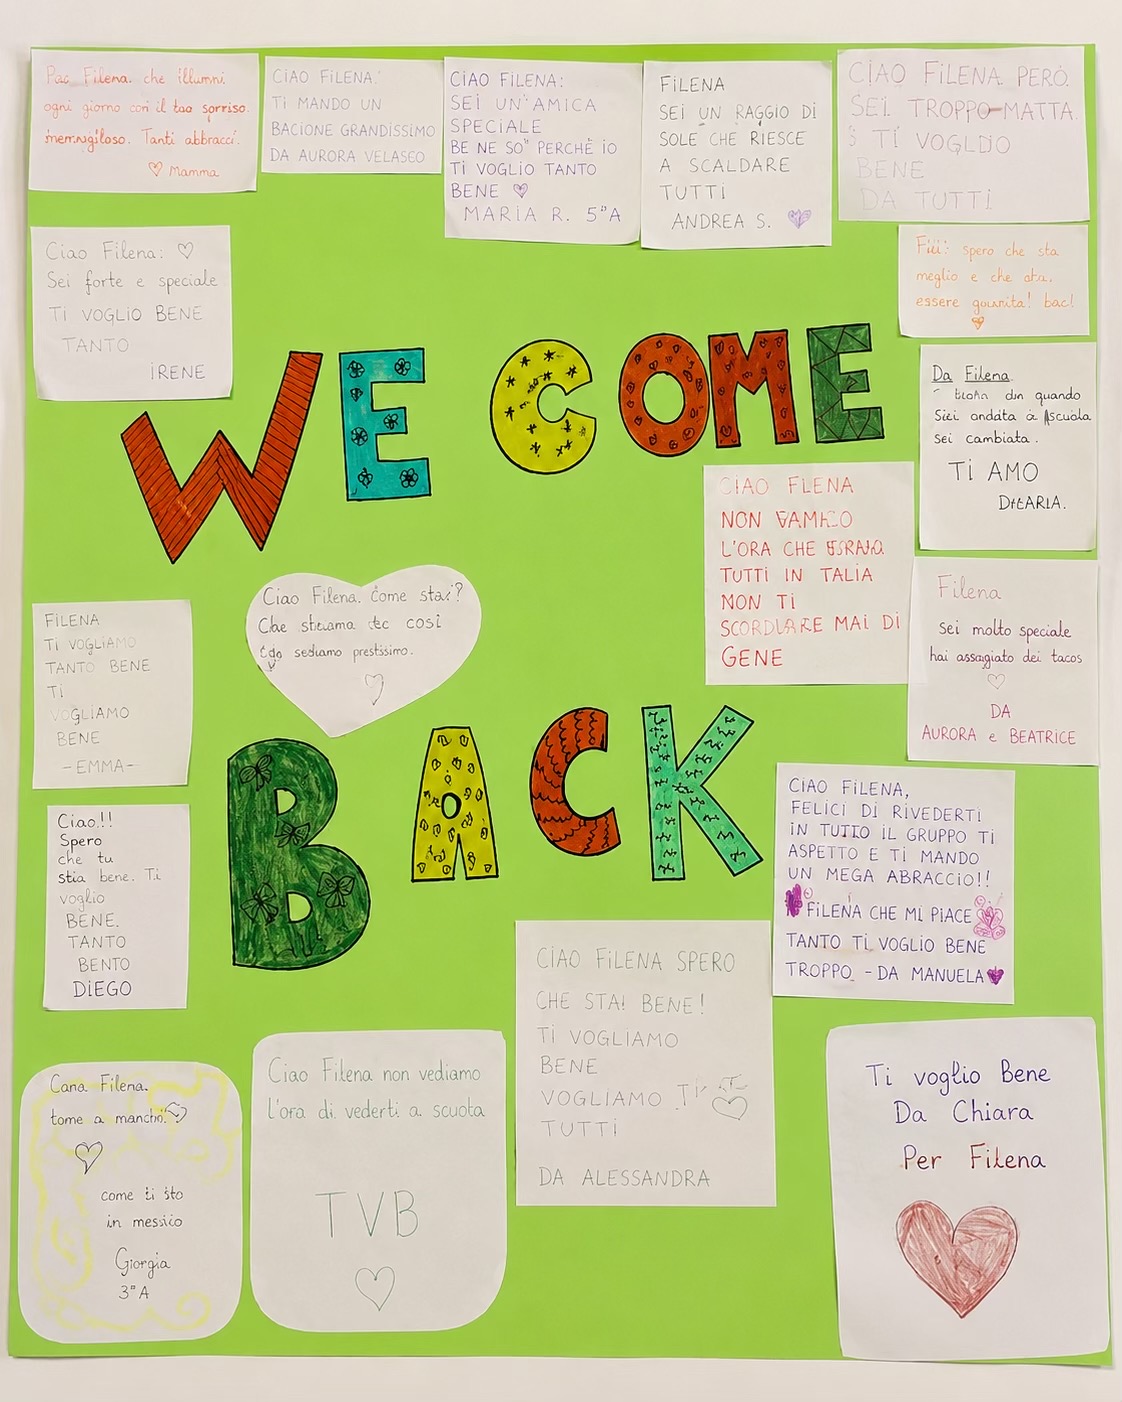 Filena. che illumni
ogni giorno con il tuo sorriso.
Tanti abbracci.
Mamma
CIAO FILENA.
TI MANDO UN
BACIONE GRANDISSIMO
DA AURORA VELASCO
CIAO FILENA:
SEI UN'AMICA
SPECIALE
BE NE SO" PERCHÈ IO
TI VOGLIO TANTO
BENE ♡
MARIA R. 5°A
FILENA
SEI UN RAGGIO DI
SOLE CHE RIESCE
A SCALDARE
TUTTI
ANDREA S.
CIAO FILENA. PERÒ.
SEI TROPPO-MATTA.
TI VOGLIO
BENE
DA TUTTI
Ciao Filena: ♡
Sei forte e speciale
TI VOGLIO BENE
TANTO
IRENE
spero che sta
meglio e che
essere bac!
Da Filena
quando
andata a scuola
sei cambiata.
TI AMO
WE COME
CIAO FLENA
NON
L'ORA CHE
TUTTI IN TALIA
NON TI
MAI DI
GENE
Filena
sei molto speciale
hai assaggiato dei tacos
♡
DA
AURORA e BEATRICE
Ciao Filena. Come stai?
Che così
prestissimo.
FILENA
TI VOGLIAMO
TANTO BENE
TI
VOGLIAMO
BENE
-EMMA-
BACK
CIAO FILENA,
FELICI DI RIVEDERTI
IN TUTTO IL GRUPPO TI
ASPETTO E TI MANDO
UN MEGA ABRACCIO!!
FILENA CHE MI PIACE
TANTO TI VOGLIO BENE
TROPPO - DA MANUELA
Ciao!!
Spero
che tu
stia bene. Ti
voglio
BENE.
TANTO
BENTO
DIEGO
CIAO FILENA SPERO
CHE STAI BENE!
TI VOGLIAMO
BENE
VOGLIAMO TI
TUTTI
DA ALESSANDRA
Cana Filena.
tome a mancho
come ti sto
in messico
Giorgia
3°A
Ciao Filena non vediamo
l'ora di vederti a scuota
TVB
Ti voglio Bene
Da Chiara
Per Filena